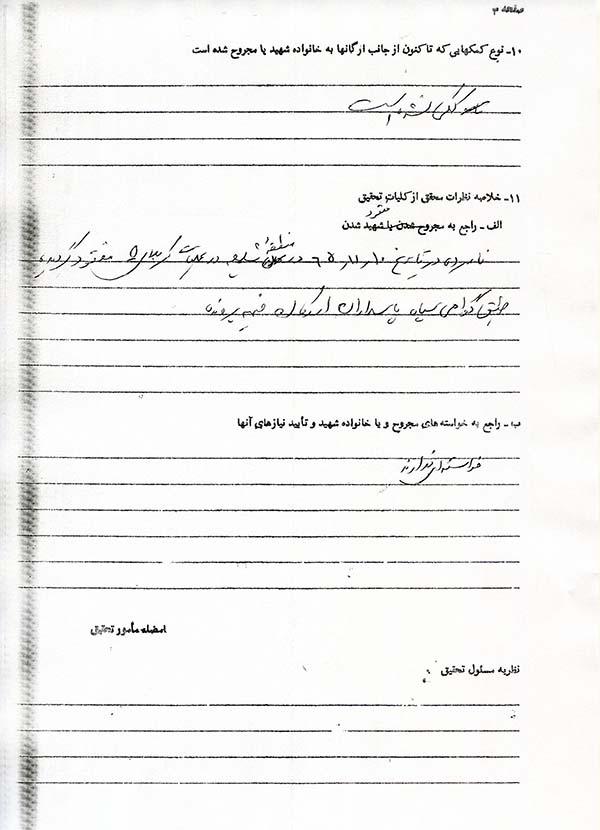 صفحه ۳
۱۰- نوع کمکهایی که تا کنون از جانب ارگانها به خانواده شهید یا مجروح شده است
کمکی نشده است
۱۱- خلاصه نظرات محقق از کلیات تحقیق
مفقود
الف - راجع به مجروح شدن یا شهید شدن
منطقه
نامبرده در تاریخ در عملیات کربلای ۵ مفقود گردیده
طبق گواهی سپاه پاسداران اردکان ضمیمه پرونده
ب - راجع به خواسته های مجروح و یا خانواده شهید و تأیید نیازهای آنها
خواسته‌ای ندارند
امضاء مأمور تحقیق
نظریه مسئول تحقیق